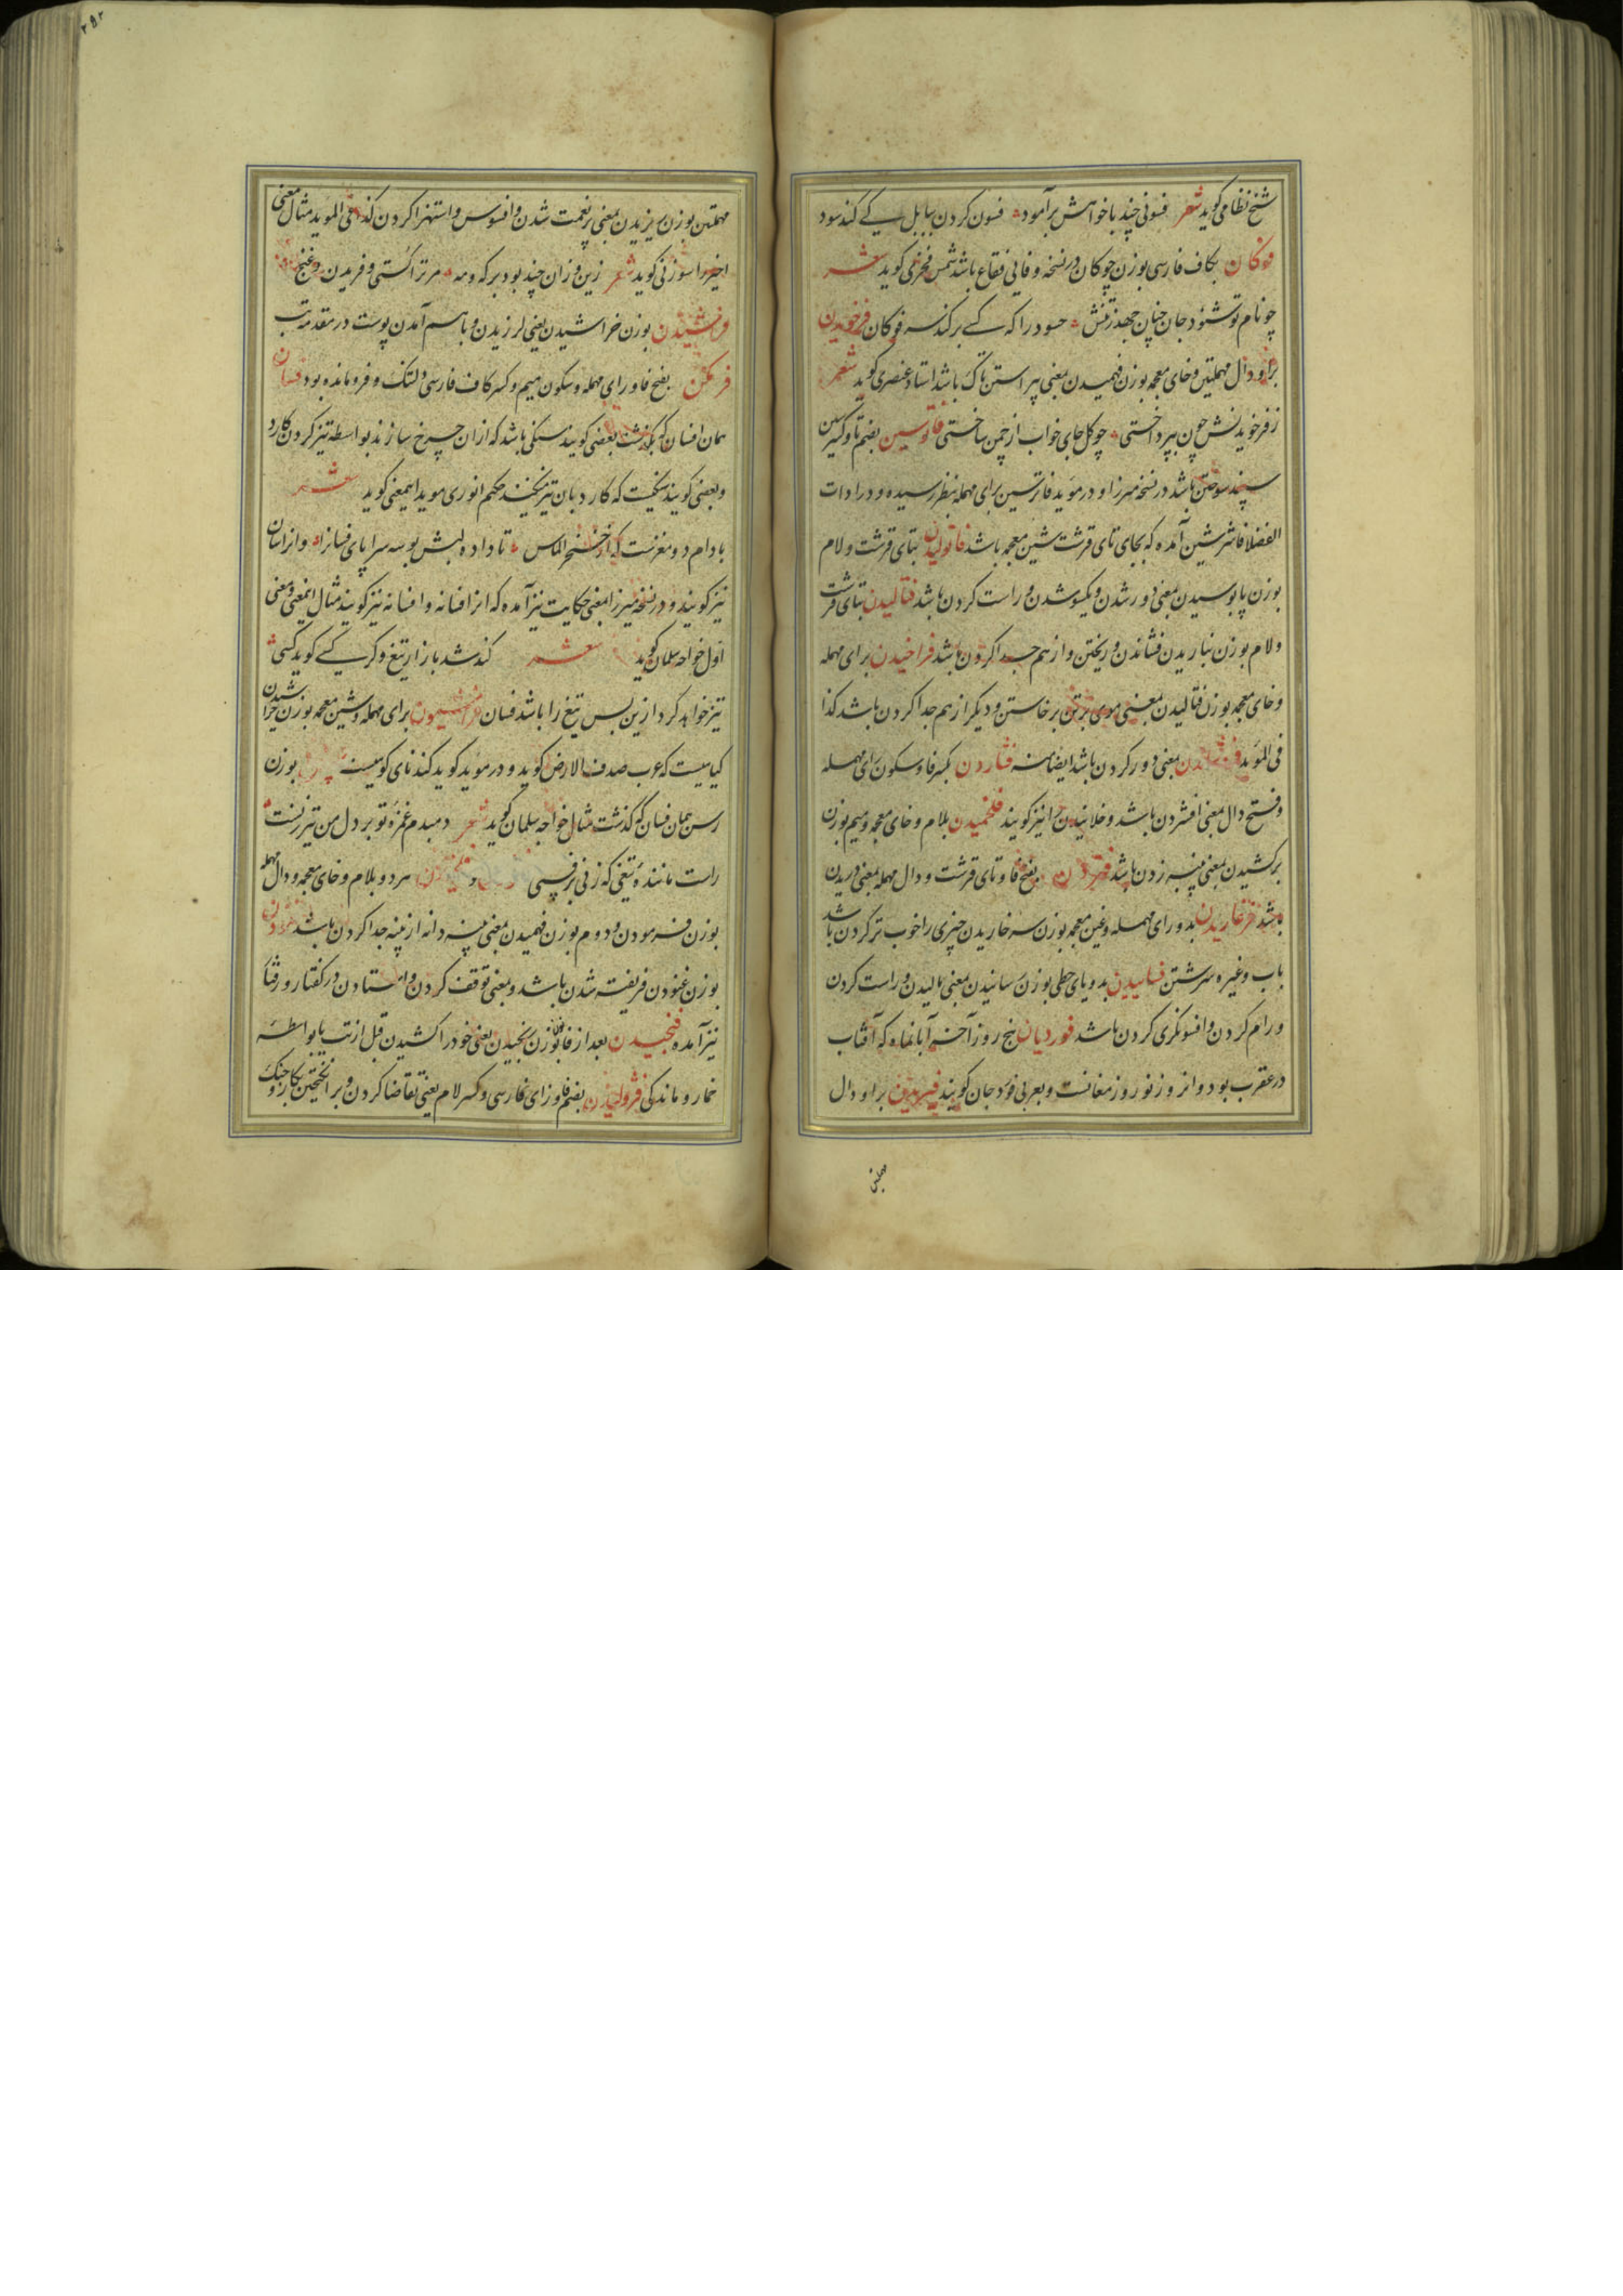 شیخ نظامی کوید شعر فسونی چند باخواهش برآمود فسون کردن ببابل کی کند سود
فوکان بکاف فارسی بوزن چوکان در نسخه وفایی فقاع باشد شمس فخری کوید شعر
چو نام تو شنود جان چنان جهد ز تنش حسود را که کسی برکند سر فوکان فرخویدن
برا و دال مهملتین و خای معجمه بوزن فهمیدن بمعنی پیراستن تاک باشد استاد عنصری کوید شعر
ز فرخویدنش چون بپرداختی چو کل جای خواب از چمن ساختی فاتوسین بضم تا و کسر سین
سپند سوختن باشد در نسخه میرزا و در مؤید فاترسین برای مهمله بنظر رسیده و در ادات
الفضلا فاشرشین آمده که بجای تای قرشت شین معجمه باشد فاتولیدن بتای قرشت و لام
بوزن پابوسیدن بمعنی دور شدن و یکسو شدن و راست کردن باشد فتالیدن بتای قرشت
و لام بوزن نباریدن فشاندن و ریختن و از هم جدا کردن باشد فراخیدن برای مهمله
و خای معجمه بوزن فتالیدن بمعنی موی بر تن برخاستن و دیکر از هم جدا کردن باشد کذا
فی المؤید بمعنی دور کردن باشد ایضا منه فشاردن بکسر فا و سکون رای مهمله
و فتح دال بمعنی افشردن باشد و خلانیدن را نیز کویند فلخمیدن بلام و خای معجمه و میم بوزن
برکشیدن بمعنی پنبه زدن باشد بفتح فا و تای قرشت و دال مهمله بمعنی دریدن
باشد فرغاریدن بدو رای مهمله و غین معجمه بوزن سه خاریدن چیزی را خوب تر کردن باشد
بآب و غیره سرشتن فسانیدن بدو یای حطی بوزن سانیدن بمعنی مالیدن و راست کردن
و رام کردن و افسونکری کردن باشد فوردیان پنج روز آخر آبانماه که آفتاب
در عقرب بود و آنروز نوروز مغانست و بعربی فؤدجان کویند فیریدن برا و دال
مهملتین
۲۵۲
مهملتین بوزن بریدن بمعنی پرنعمت شدن و افسوس و استهزا کردن کذا فی المؤید مثال معنی
اخیر را سوزنی کوید شعر زین و زان چند بود بر که و مه مر ترا کشی و فریدن و غنج
فراشیدن بوزن خراشیدن یعنی لرزیدن و باهم آمدن پوست در مقدمه تب
فرمکن بفتح فا و رای مهمله و سکون میم و کسر کاف فارسی دلتنک و فرومانده بود فسان
همان افسان که بگذشت بعضی کویند سنکی باشد که از آن چرخ سازند بواسطه تیز کردن کارد
و بعضی کویند سنکیست که کارد بآن تیز میکنند حکیم انوری مؤید اینمعنی کوید شعر
بادام دو مغزست که از خنجر الماس تا داده لبش بوسه سراپای فسانرا و آنرا سان
نیز کویند و در نسخه میرزا بمعنی حکایت نیز آمده که آنرا فسانه و افسانه نیز کویند مثال اینمعنی و معنی
اول خواجه سلمان کوید شعر کند شد بازار تیغ و کر کسی کوید کسی
تیز خواهد کرد ازین پس تیغ را باشد فسان فراشیون برای مهمله و شین معجمه بوزن خراشیدن
کیاهیست که عرب صدف الارض کوید و در مؤید کوید کندنای کوهیست بوزن
رسن همان فسان که گذشت مثال خواجه سلمان کوید شعر دمبدم غمزه تو بر دل من تیزترست
راست ماننده تیغی که زنی بر فسنی و هر دو بلام و خای معجمه و دال مهمله
بوزن فرمودن و دوم بوزن فهمیدن بمعنی پنبه دانه از پنبه جدا کردن باشد فنودن
بوزن غنودن فریفته شدن باشد و بمعنی توقف کردن و ایستادن در کفتار و رفتار
نیز آمده فنجیدن بعد از فا نون بوزن رنجیدن یعنی خود را کشیدن قبل از تب یا بواسطه
خمار و ماندکی فژولیدن بضم فا و زای فارسی و کسر لام یعنی تقاضا کردن و برانکیختن بکار و جنک